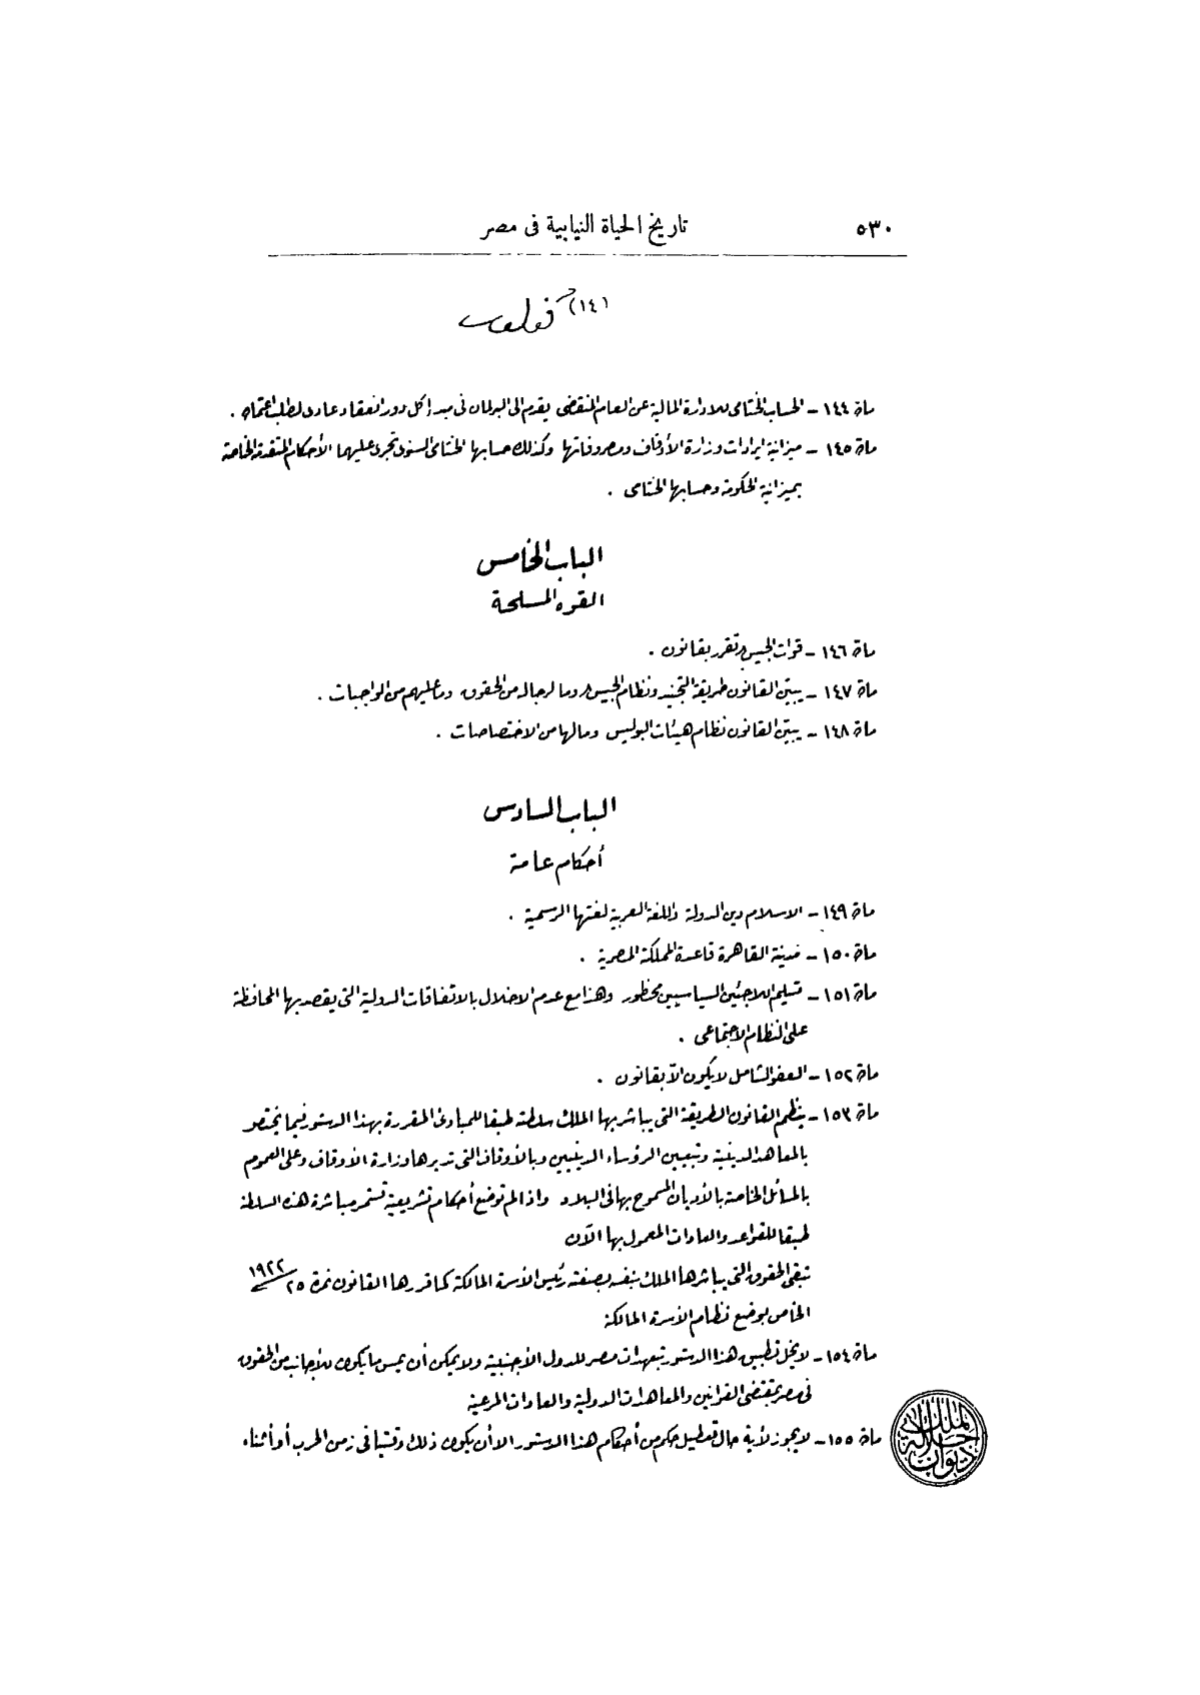 ٥٣٠
تاريخ الحياة النيابية فى مصر
(١٤)
مادة ١٤٤ – الحساب الختامى للادارة المالية عن العام المنقضى يقدم الى البرلمان فى مبدإ كل دور انعقاد عادى لطلب اعتماده .
مادة ١٤٥ – ميزانية ايرادات وزارة الأوقاف ومصروفاتها وكذلك حسابها الختامى السنوى تجرى عليهما الأحكام المتقدمة الخاصة
بميزانية الحكومة وحسابها الختامى .
الباب الخامس
القوه المسلحة
مادة ١٤٦ – قوات الجيش تقرر بقانون .
مادة ١٤٧ – يبيّن القانون طريقة التجنيد ونظام الجيش وما لرجاله من الحقوق وما عليهم من الواجبات .
مادة ١٤٨ – يبيّن القانون نظام هيئات البوليس وما لها من الاختصاصات .
الباب السادس
أحكام عامة
مادة ١٤٩ – الاسلام دين الدولة واللغة العربية لغتها الرسمية .
مادة ١٥٠ – مدينة القاهرة قاعدة المملكة المصرية .
مادة ١٥١ – تسليم اللاجئين السياسيين محظور وهذا مع عدم الاخلال بالاتفاقات الدولية التى يقصد بها المحافظة
على النظام الاجتماعى .
مادة ١٥٢ – العفو الشامل لا يكون الّا بقانون .
مادة ١٥٣ – ينظم القانون الطريقة التى يباشر بها الملك سلطته طبقا للمبادئ المقررة بهذا الدستور فيما يختص
بالمعاهد الدينية وتعيين الرؤساء الدينيين وبالأوقاف التى تديرها وزارة الأوقاف وعلى العموم
بالمسائل الخاصة بالأديان المسموح بها فى البلاد واذا لم توضع أحكام تشريعية تستمر مباشرة هذه السلطة
طبقا للقواعد والعادات المعمول بها الآن
تبقى الحقوق التى يباشرها الملك بنفسه بصفته رئيس الأسرة المالكة كما قررها القانون نمرة ٢٥ سنة ١٩٢٢
الخاص بوضع نظام الأسرة المالكة
مادة ١٥٤ – لا يخل تطبيق هذا الدستور بتعهدات مصر للدول الأجنبية ولا يمكن أن يمس ما يكون للأجانب من الحقوق
فى مصر بمقتضى القوانين والمعاهدات الدولية والعادات المرعية
مادة ١٥٥ – لا يجوز لأية حال تعطيل حكم من أحكام هذا الدستور الا أن يكون ذلك وقتيا فى زمن الحرب أو أثناء
ديوان جلالة الملك